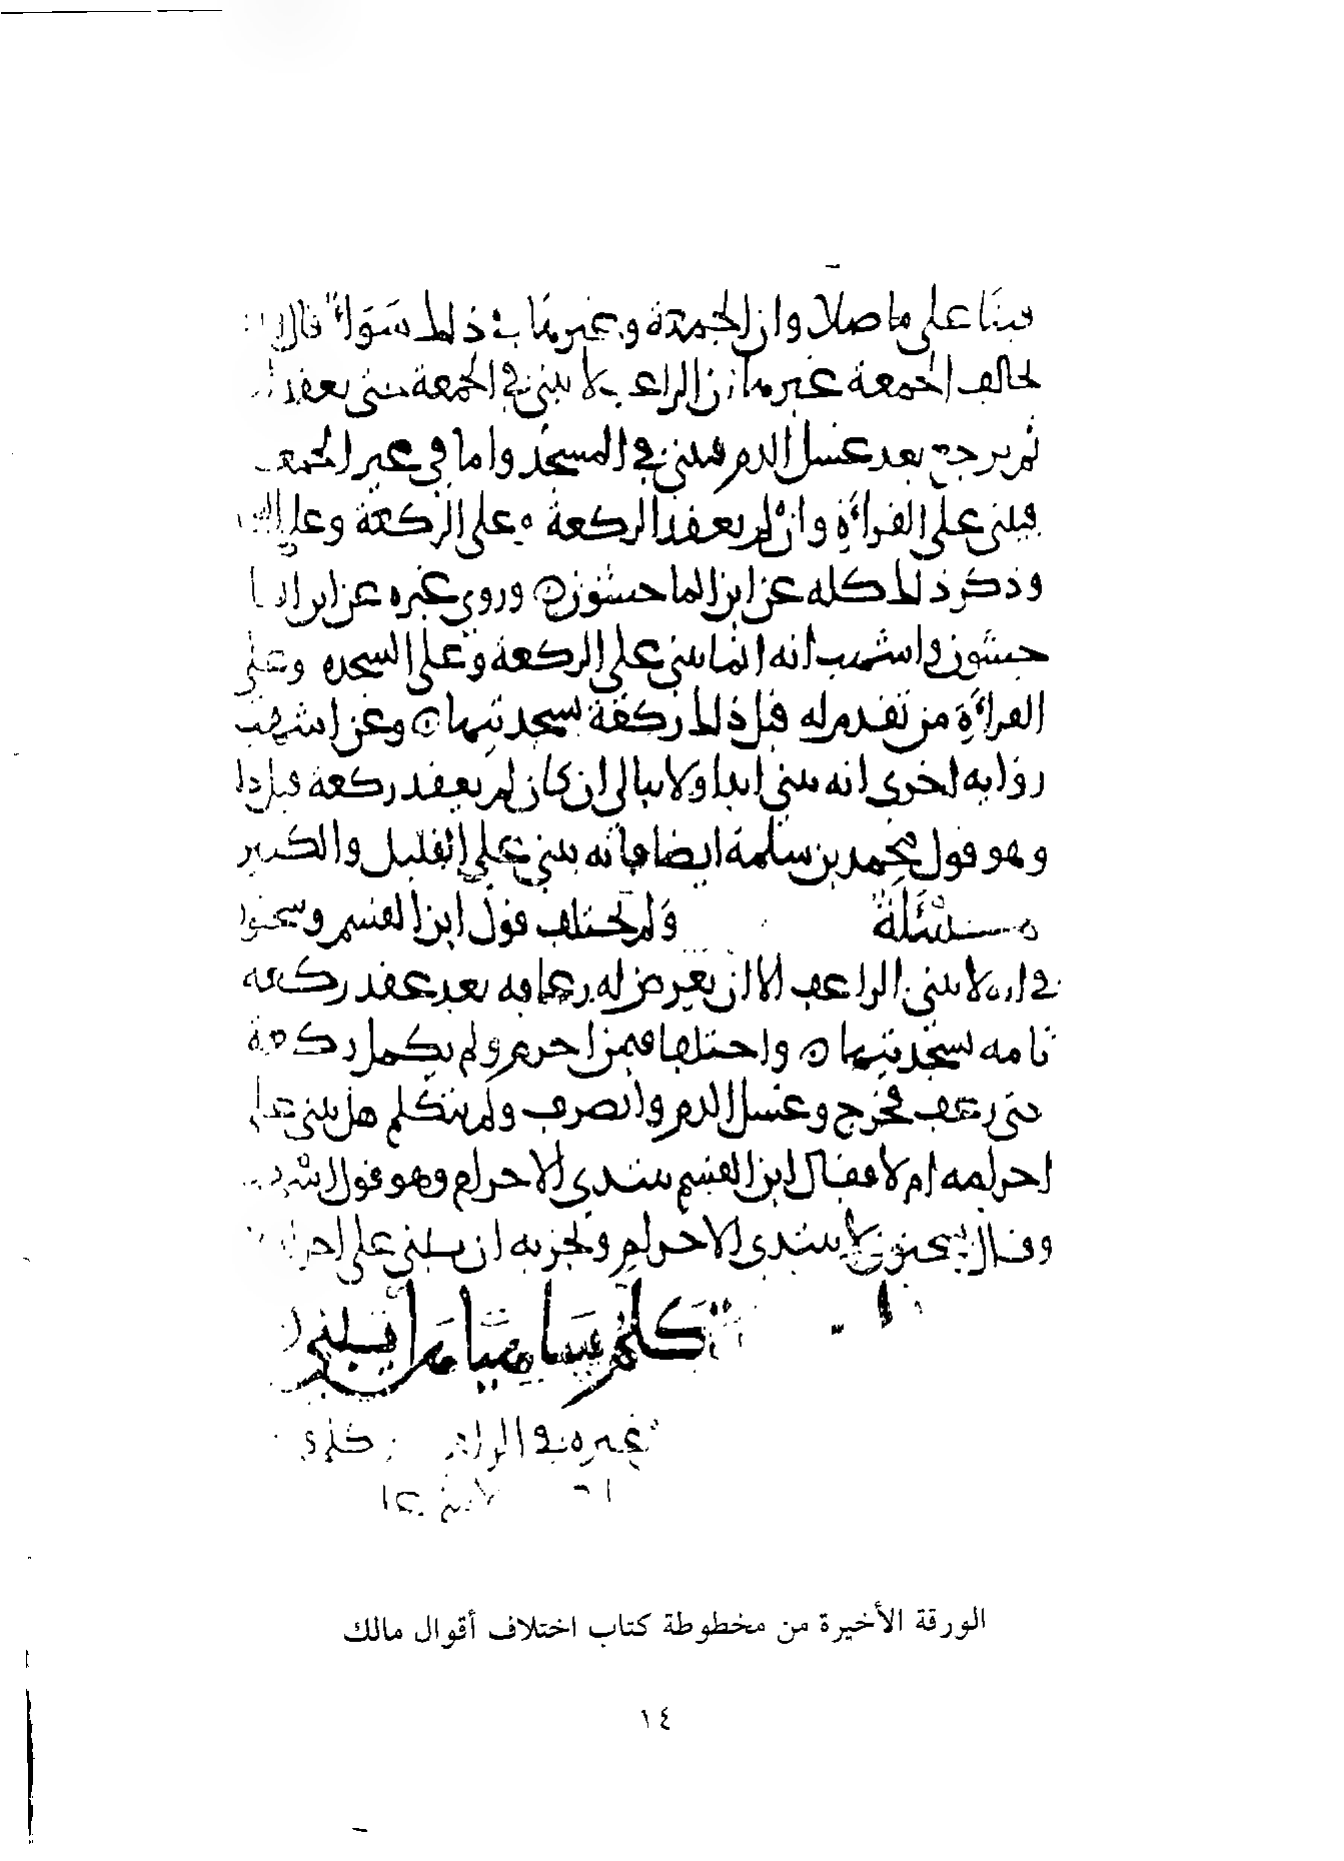 فبنا على ما صلا وان الجمعة وغيرها في ذلك سَوَاءٌ قال
تخالف الجمعة غيرها ان الراعف لا يبني في الجمعة حتى يعقد
ثم يرجع بعد غسل الدم فيبني في المسجد واما في غير الجمعـ
فيبني على القراءة وان لم يعقد الركعة وعلى الركعة وعلى
وذكر ذلك كله عن ابن الماجشون وروى غيره عن ابن الما
جشون واشهب انه انما يبني على الركعة وعلى السجده وعلى
القراءة من تقدم له قبل ذلك ركعة بسجدتيها وعن اشهب
روايه اخرى انه يبني ابدا ولا يبالي ان كان لم يعقد ركعة قبل
وهو قول محمد بن سلمة ايضا فانه يبني على القليل والكثير
مسئلة ولم يختلف قول ابن القسم وسحنون
في انه لا يبني الراعف الا ان يعرض له رعافه بعد عقد ركعه
تامه بسجدتيها واختلفا فيمن احرم ولم يكمل ركعة
حتى رعف فخرج وغسل الدم وانصرف ولم يتكلم هل يبني على
احرامه ام لا فقال ابن القسم يبتدي الاحرام وهو قول
وقال سحنون لا يبتدي الاحرام ويجزيه ان يبني على
غيره في
الورقة الأخيرة من مخطوطة كتاب اختلاف أقوال مالك
١٤